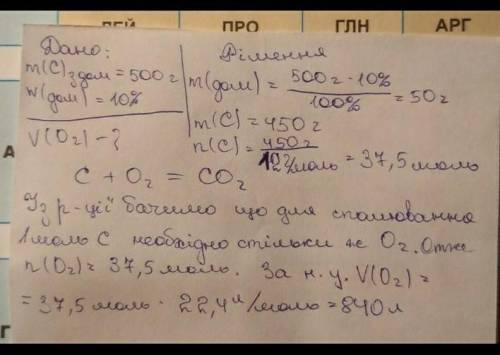 ЛЕЙ ПРО ГЛН АРГ
Дано:
m(C)з дом = 500 г
w(дом) = 10%
V(O₂) - ?
Рішення
m(дом) = 500г · 10% / 100% = 50г
m(C) = 450 г
n(C) = 450г / 12г/моль = 37,5 моль
C + O₂ = CO₂
Із р-ції бачимо що для спалювання
1 моль C необхідно стільки ж O₂. Отже
n(O₂) = 37,5 моль. За н.у. V(O₂) =
= 37,5 моль · 22,4 л/моль = 840 л